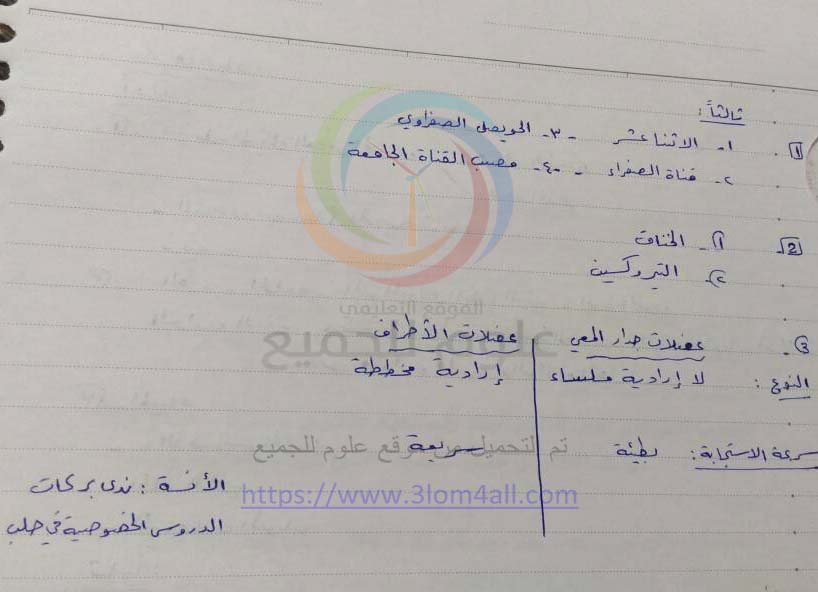 ثالثاً:
1 1- الاثنا عشر - 3- الحويصل الصفراوي
2- قناة الصفراء - 4- مصب القناة الجامعة
2 1- الخناق
2- التيروكسين
3- عضلات جدار المعي عضلات الأطراف
النوع: لا إرادية ملساء إرادية مخططة
سرعة الاستجابة: بطيئة سريعة
الموقع التعليمي
علوم للجميع
تم التحميل من موقع علوم للجميع
https://www.3lom4all.com
الآنسة: ندى بركات
الدروس الخصوصية في حلب